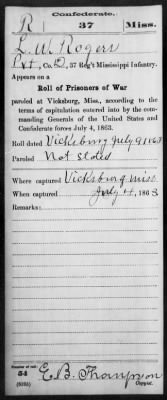 Confederate.
R 37 Miss.
L. W. Rogers
Pvt, Co. D, 37 Reg't Mississippi Infantry.
Appears on a
Roll of Prisoners of War
paroled at Vicksburg, Miss., according to the
terms of capitulation entered into by the com-
manding Generals of the United States and
Confederate forces July 4, 1863.
Roll dated Vicksburg July 9 1863
Paroled Not stated
Where captured Vicksburg Miss
When captured July 4, 1863
Remarks:
Number of roll:
54 E. B. Thompson
Copyist.